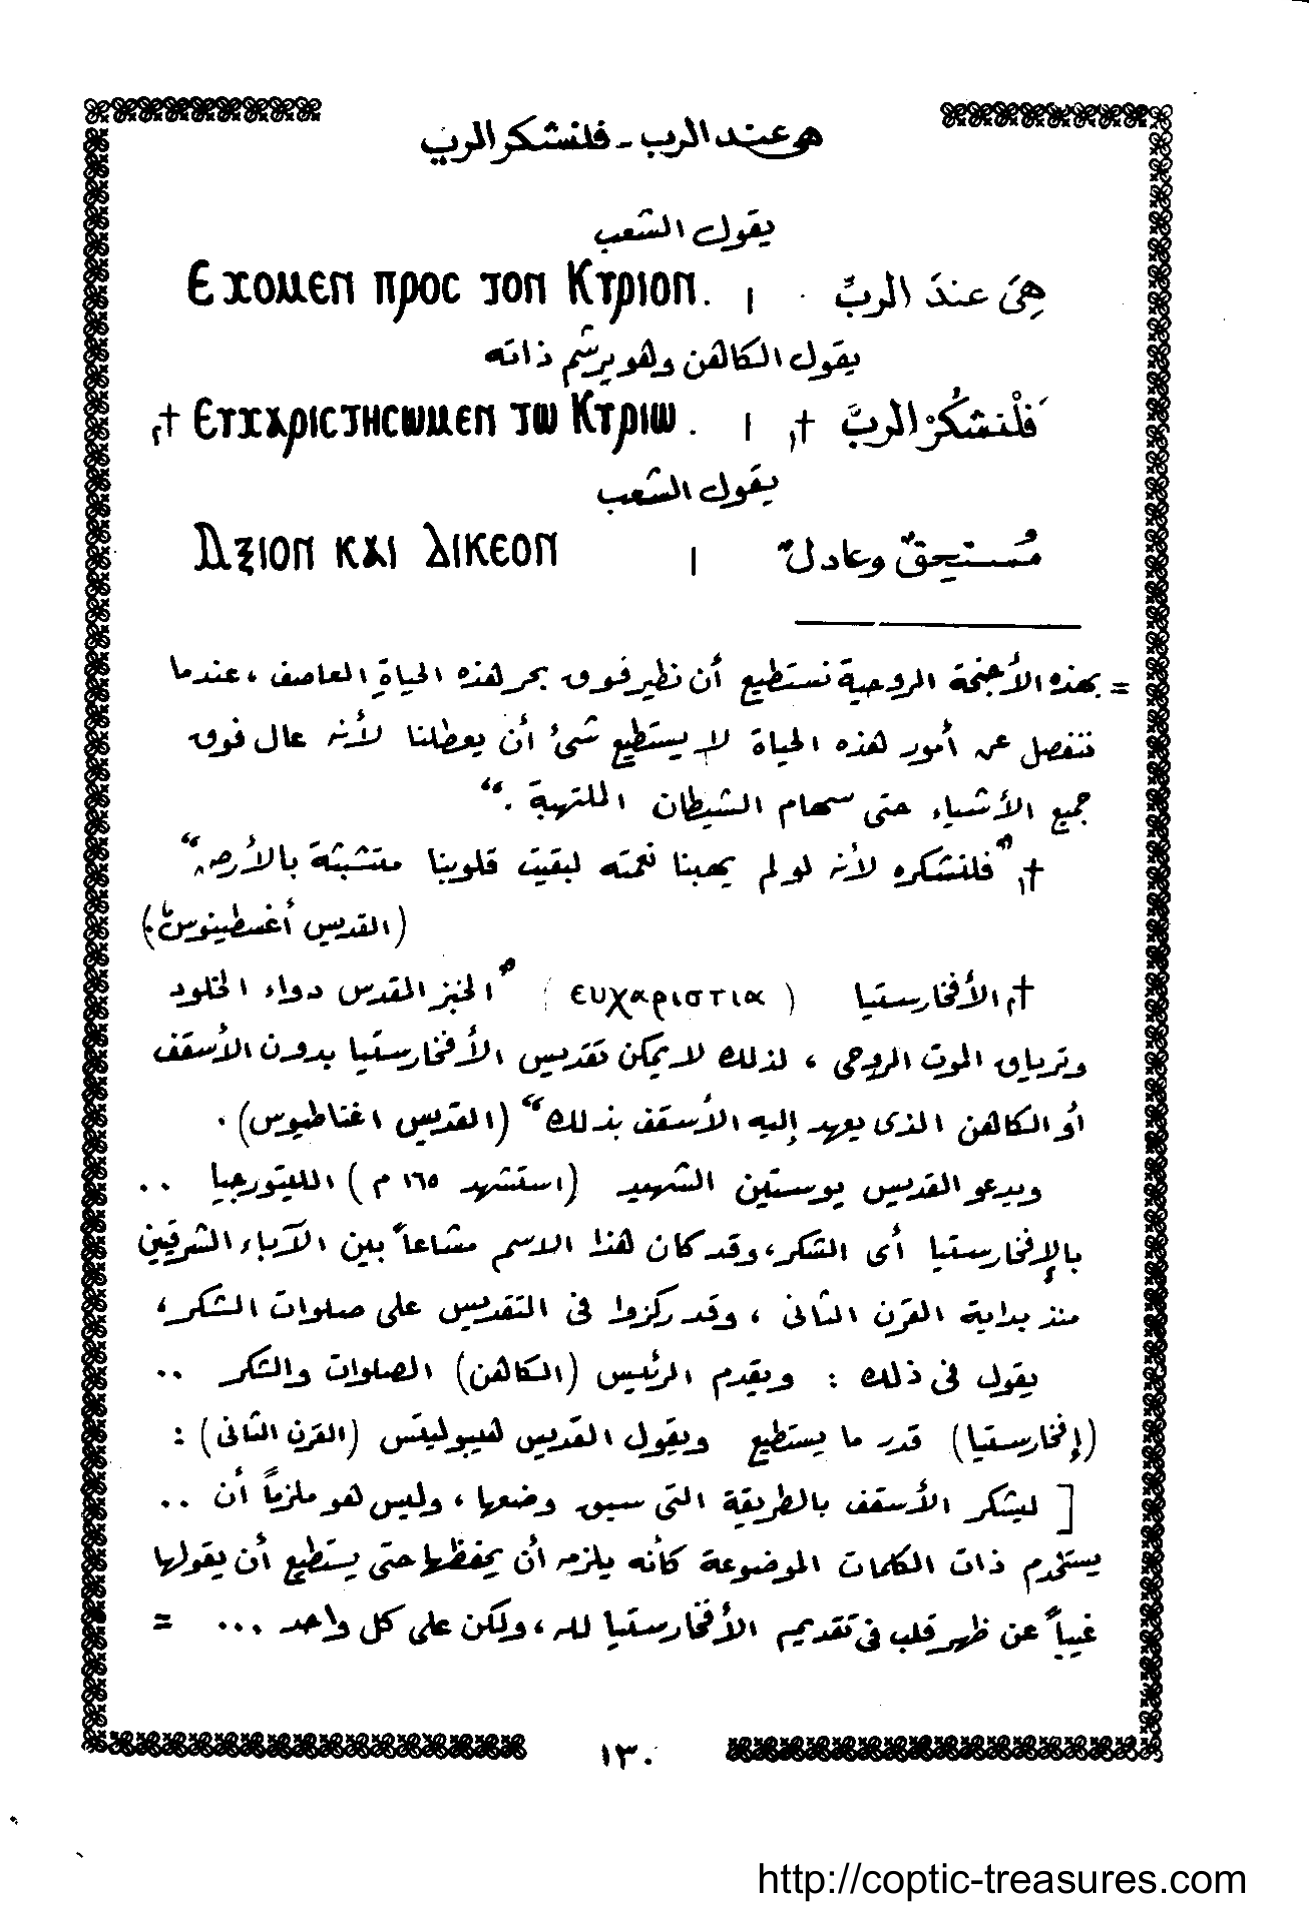 هى عند الرب - فلنشكر الرب
يقول الشعب
هِىَ عندَ الربِّ . ا Ⲉⲭⲟⲙⲉⲛ ⲡⲣⲟⲥ ⲧⲟⲛ Ⲕⲩⲣⲓⲟⲛ.
يقول الكاهن وهو يرشم ذاته
فلْنشكُرْ الربَّ ✝ ا Ⲉⲩⲭⲁⲣⲓⲥⲧⲏⲥⲱⲙⲉⲛ ⲧⲱ Ⲕⲩⲣⲓⲱ. ✝
يقول الشعب
مُستحِقٌ وعادلٌ ا Ⲁⲝⲓⲟⲛ ⲕⲁⲓ Ⲇⲓⲕⲉⲟⲛ
= بهذه الأجنحة الروحية نستطيع أن نطير فوق بحر هذه الحياةِ العاصف ، عندما
ننفصل عن أمور هذه الحياة لا يستطيع شئ أن يعطلنا لأنه عال فوق
جميع الأشياء حتى سهام الشيطان الملتهبة .“
✝ ” فلنشكره لأنه لو لم يهبنا نعمته لبقيت قلوبنا متشبثة بالأرض “
(القديس أغسطينوس)
✝ الأفخارستيا ( ευχαριστια ) ” الخبز المقدس دواء الخلود
وترياق الموت الروحى ، لذلك لا يمكن تقديس الأفخارستيا بدون الأسقف
أو الكاهن الذى يعهد إليه الأسقف بذلك “ (القديس اغناطيوس) .
ويدعو القديس يوستين الشهيد (استشهد ١٦٥ م ) الليتورجيا ..
بالإفخارستيا أى الشكر، وقد كان هذا الاسم مشاعاً بين الآباء الشرقيين
منذ بداية القرن الثانى ، وقد ركزوا فى التقديس على صلوات الشكر ،
يقول فى ذلك : ويقدم الرئيس (الكاهن) الصلوات والشكر ..
(إفخارستيا) قدر ما يستطيع ويقول القديس هيبوليتس (القرن الثانى) :
[ ليشكر الأسقف بالطريقة التى سبق وضعها ، وليس هو ملزماً أن ..
يستخدم ذات الكلمات الموضوعة كأنه يلزمه أن يحفظها حتى يستطيع أن يقولها
غيباً عن ظهر قلب فى تقديمه الأفخارستيا لله ، ولكن على كل واحد ... =
١٣٠
http://coptic-treasures.com